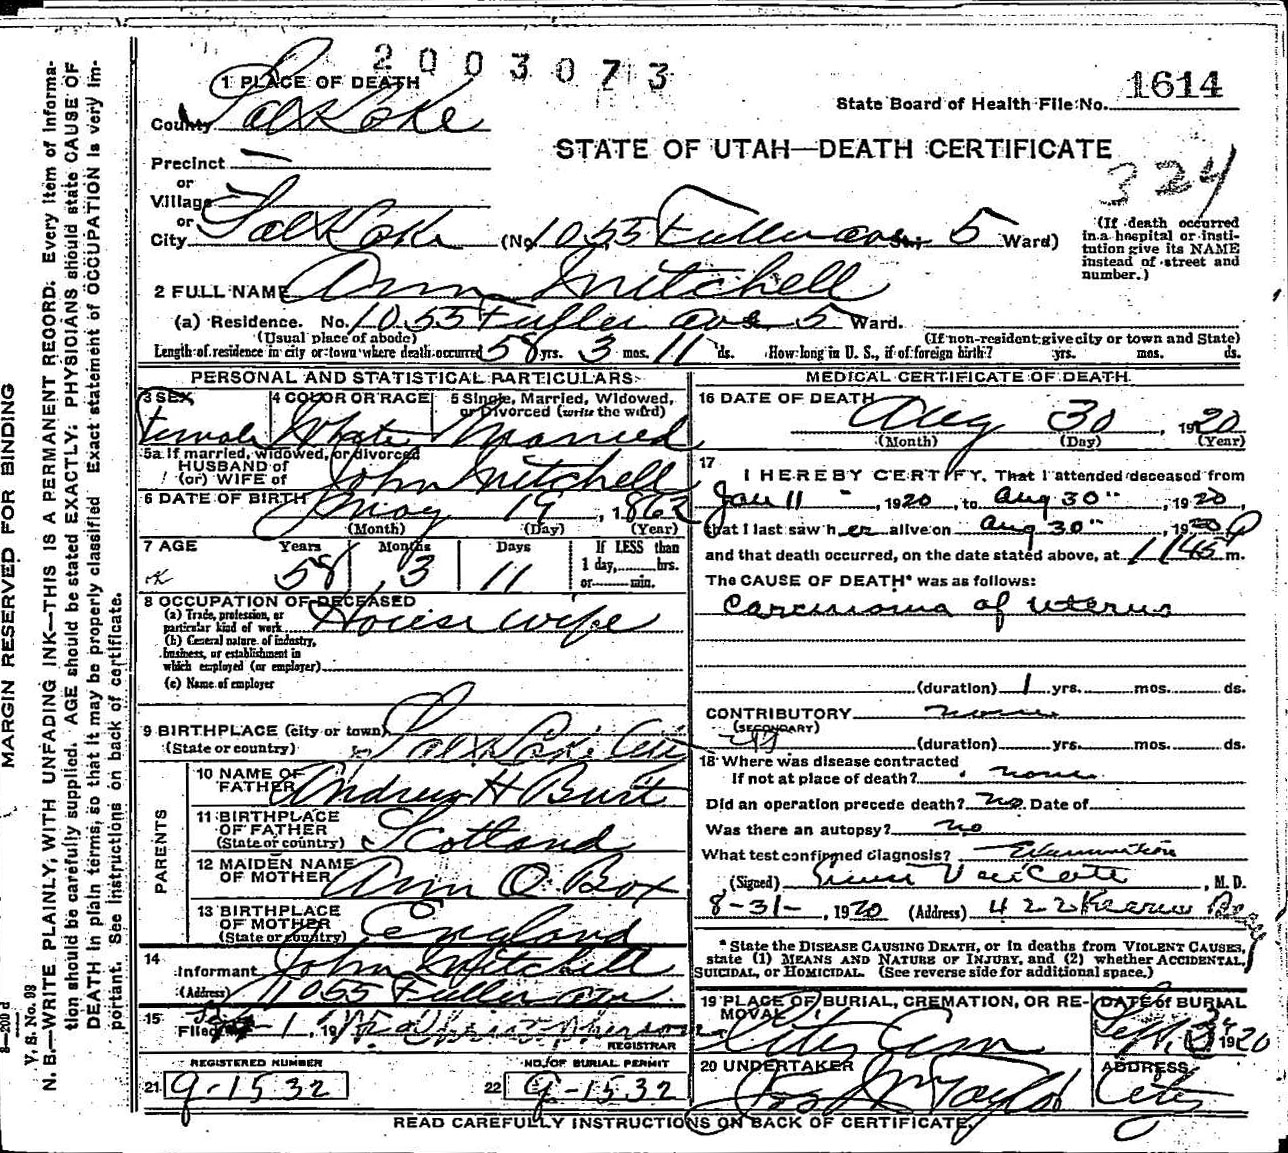 2003073
1 PLACE OF DEATH
State Board of Health File No. 1614
County Salt Lake
STATE OF UTAH—DEATH CERTIFICATE
Precinct —
324
or
Village
or
City Salt Lake (No 1055 Fuller ave St.; 5 Ward)
(If death occurred in a hospital or institution give its NAME instead of street and number.)
2 FULL NAME Ann Mitchell
(a) Residence. No. 1055 Fuller ave 5 Ward.
(Usual place of abode) (If non-resident give city or town and State)
Length of residence in city or town where death occurred 58 yrs. 3 mos. 11 ds. How long in U. S., if of foreign birth? yrs. mos. ds.
PERSONAL AND STATISTICAL PARTICULARS
3 SEX Female
4 COLOR OR RACE White
5 Single, Married, Widowed, or Divorced (write the word) Married
5a If married, widowed, or divorced
HUSBAND of
(or) WIFE of John Mitchell
6 DATE OF BIRTH May 19, 1862
(Month) (Day) (Year)
7 AGE Years 58 Months 3 Days 11
If LESS than
1 day, hrs.
or min.
8 OCCUPATION OF DECEASED
(a) Trade, profession, or
particular kind of work House wife
(b) General nature of industry,
business, or establishment in
which employed (or employer)
(c) Name of employer
9 BIRTHPLACE (city or town) Salt Lake City
(State or country)
PARENTS
10 NAME OF FATHER Andrew H Burt
11 BIRTHPLACE OF FATHER (State or country) Scotland
12 MAIDEN NAME OF MOTHER Ann O. Box
13 BIRTHPLACE OF MOTHER (State or country) England
14 Informant John Mitchell
(Address) 1055 Fuller ave
15 Filed -1, 19
REGISTRAR
REGISTERED NUMBER
21 9-1532
NO. OF BURIAL PERMIT
22 9-1532
MEDICAL CERTIFICATE OF DEATH
16 DATE OF DEATH Aug 30, 1920
(Month) (Day) (Year)
17 I HEREBY CERTIFY, That I attended deceased from
Jan 11, 1920, to Aug 30, 1920,
that I last saw her alive on Aug 30, 1920
and that death occurred, on the date stated above, at 1145 P m.
The CAUSE OF DEATH* was as follows:
Carcinoma of uterus
(duration) 1 yrs. mos. ds.
CONTRIBUTORY none
(SECONDARY)
(duration) yrs. mos. ds.
18 Where was disease contracted
if not at place of death? none
Did an operation precede death? no Date of
Was there an autopsy? no
What test confirmed diagnosis? Examination
(Signed) Van Cott, M. D.
8-31-, 1920 (Address) 422 Kearns Bldg
* State the DISEASE CAUSING DEATH, or in deaths from VIOLENT CAUSES,
state (1) MEANS AND NATURE OF INJURY, and (2) whether ACCIDENTAL,
SUICIDAL, or HOMICIDAL. (See reverse side for additional space.)
19 PLACE OF BURIAL, CREMATION, OR REMOVAL City Cem
DATE of BURIAL Sept. 3 1920
20 UNDERTAKER Jos Wm Taylor
ADDRESS City
READ CAREFULLY INSTRUCTIONS ON BACK OF CERTIFICATE.
MARGIN RESERVED FOR BINDING
V. S. No. 98
N. B.—WRITE PLAINLY, WITH UNFADING INK—THIS IS A PERMANENT RECORD. Every item of information should be carefully supplied. AGE should be stated EXACTLY. PHYSICIANS should state CAUSE OF DEATH in plain terms, so that it may be properly classified. Exact statement of OCCUPATION is very important. See instructions on back of certificate.